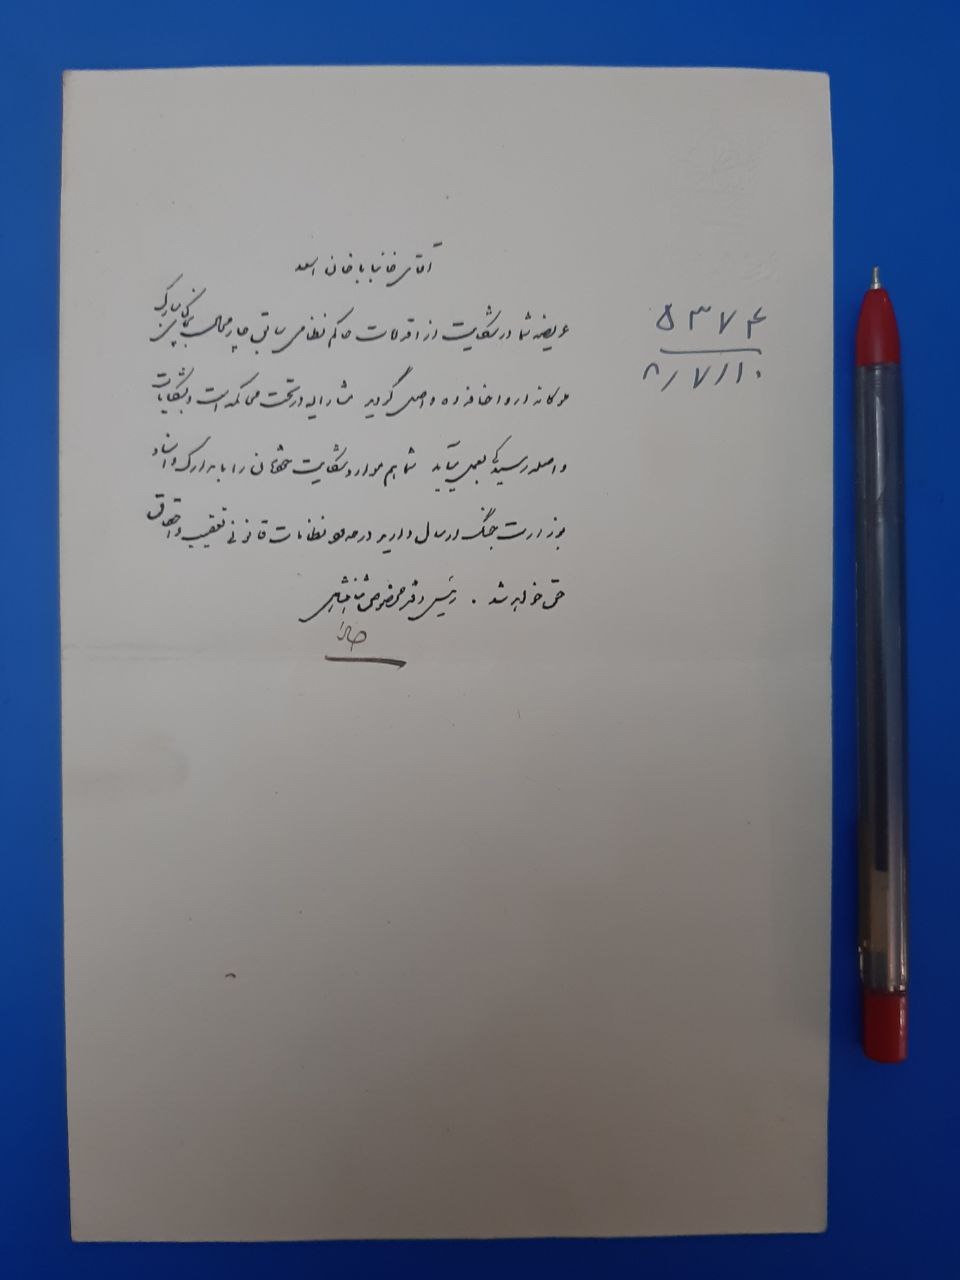 آقای خانبابا خان اسعد
۵۳۷۴
۸/۷/۱۰
عریضه شما در شکایت از اقدامات حاکم نظامی سابق چهارمحال بخاکپای مبارک
ملوکانه ارواحنا فداه واصل گردید مشارالیه در تحت محاکمه است و بشکایات
واصله رسیدگی بعمل میآید شما هم موارد شکایت خودتان را با مدارک و اسناد
بوزارت جنگ ارسال دارید در حدود نظامات قانونی تعقیب و احقاق
حق خواهد شد . رئیس دفتر مخصوص شاهنشاهی